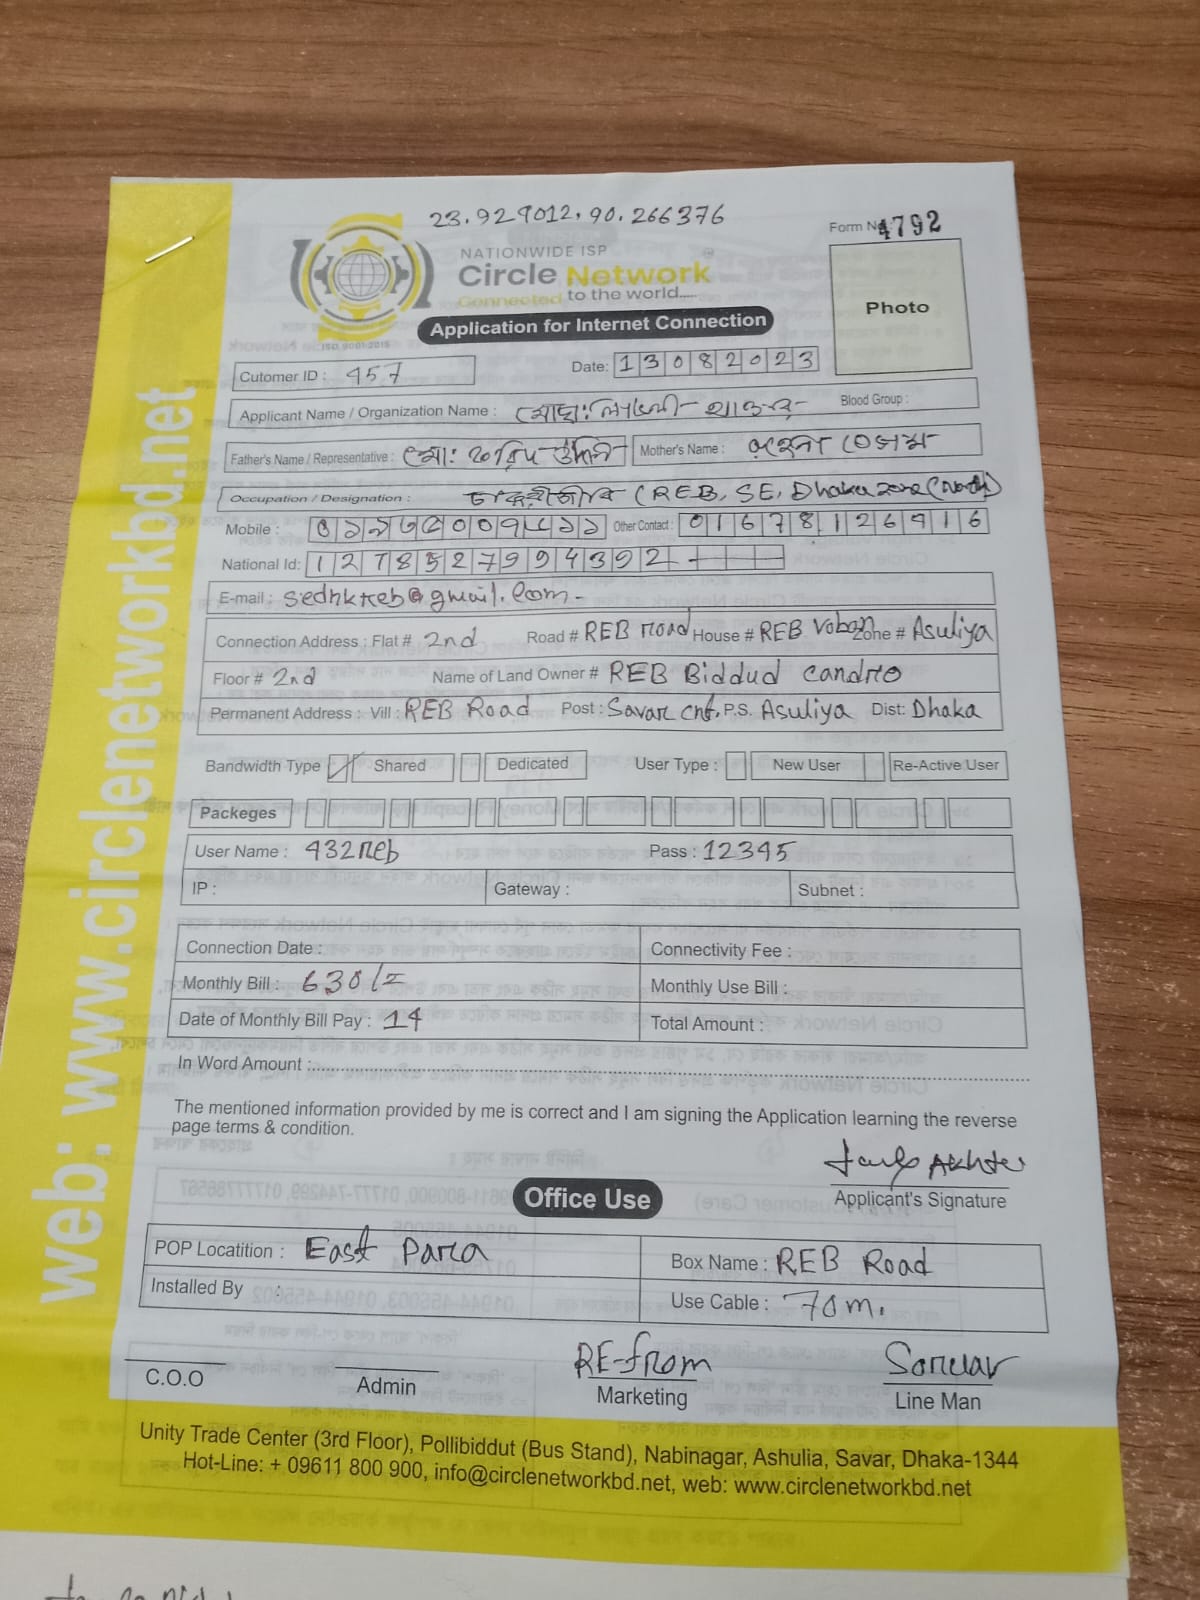 23.929012, 90.266376
Form No 4792
NATIONWIDE ISP
Circle Network
Connected to the world.....
ISO 9001:2015
Application for Internet Connection
Photo
Cutomer ID : 457
Date: 13082023
Applicant Name / Organization Name :
Blood Group :
Father's Name / Representative : মোঃ
Mother's Name : বেগম
Occupation / Designation : (REB, SE, Dhaka zone (North)
Mobile :
Other Contact : 01678126916
National Id: 1278527994392
E-mail : sedhkreb@gmail.com
Connection Address : Flat # 2nd Road # REB Road House # REB Vobon Zone # Asuliya
Floor # 2nd Name of Land Owner # REB Biddud Candro
Permanent Address : Vill : REB Road Post : Savar Cnt. P.S. Asuliya Dist: Dhaka
Bandwidth Type Shared Dedicated User Type : New User Re-Active User
Packeges
User Name : 432reb Pass : 12345
IP : Gateway : Subnet :
Connection Date : Connectivity Fee :
Monthly Bill : 630/= Monthly Use Bill :
Date of Monthly Bill Pay : 14 Total Amount :
In Word Amount :
The mentioned information provided by me is correct and I am signing the Application learning the reverse
page terms & condition.
Akhter
Applicant's Signature
Office Use
POP Locatition : East Para Box Name : REB Road
Installed By : Use Cable : 70m.
RE-from Sorwar
C.O.O Admin Marketing Line Man
Unity Trade Center (3rd Floor), Pollibiddut (Bus Stand), Nabinagar, Ashulia, Savar, Dhaka-1344
Hot-Line: + 09611 800 900, info@circlenetworkbd.net, web: www.circlenetworkbd.net
web: www.circlenetworkbd.net